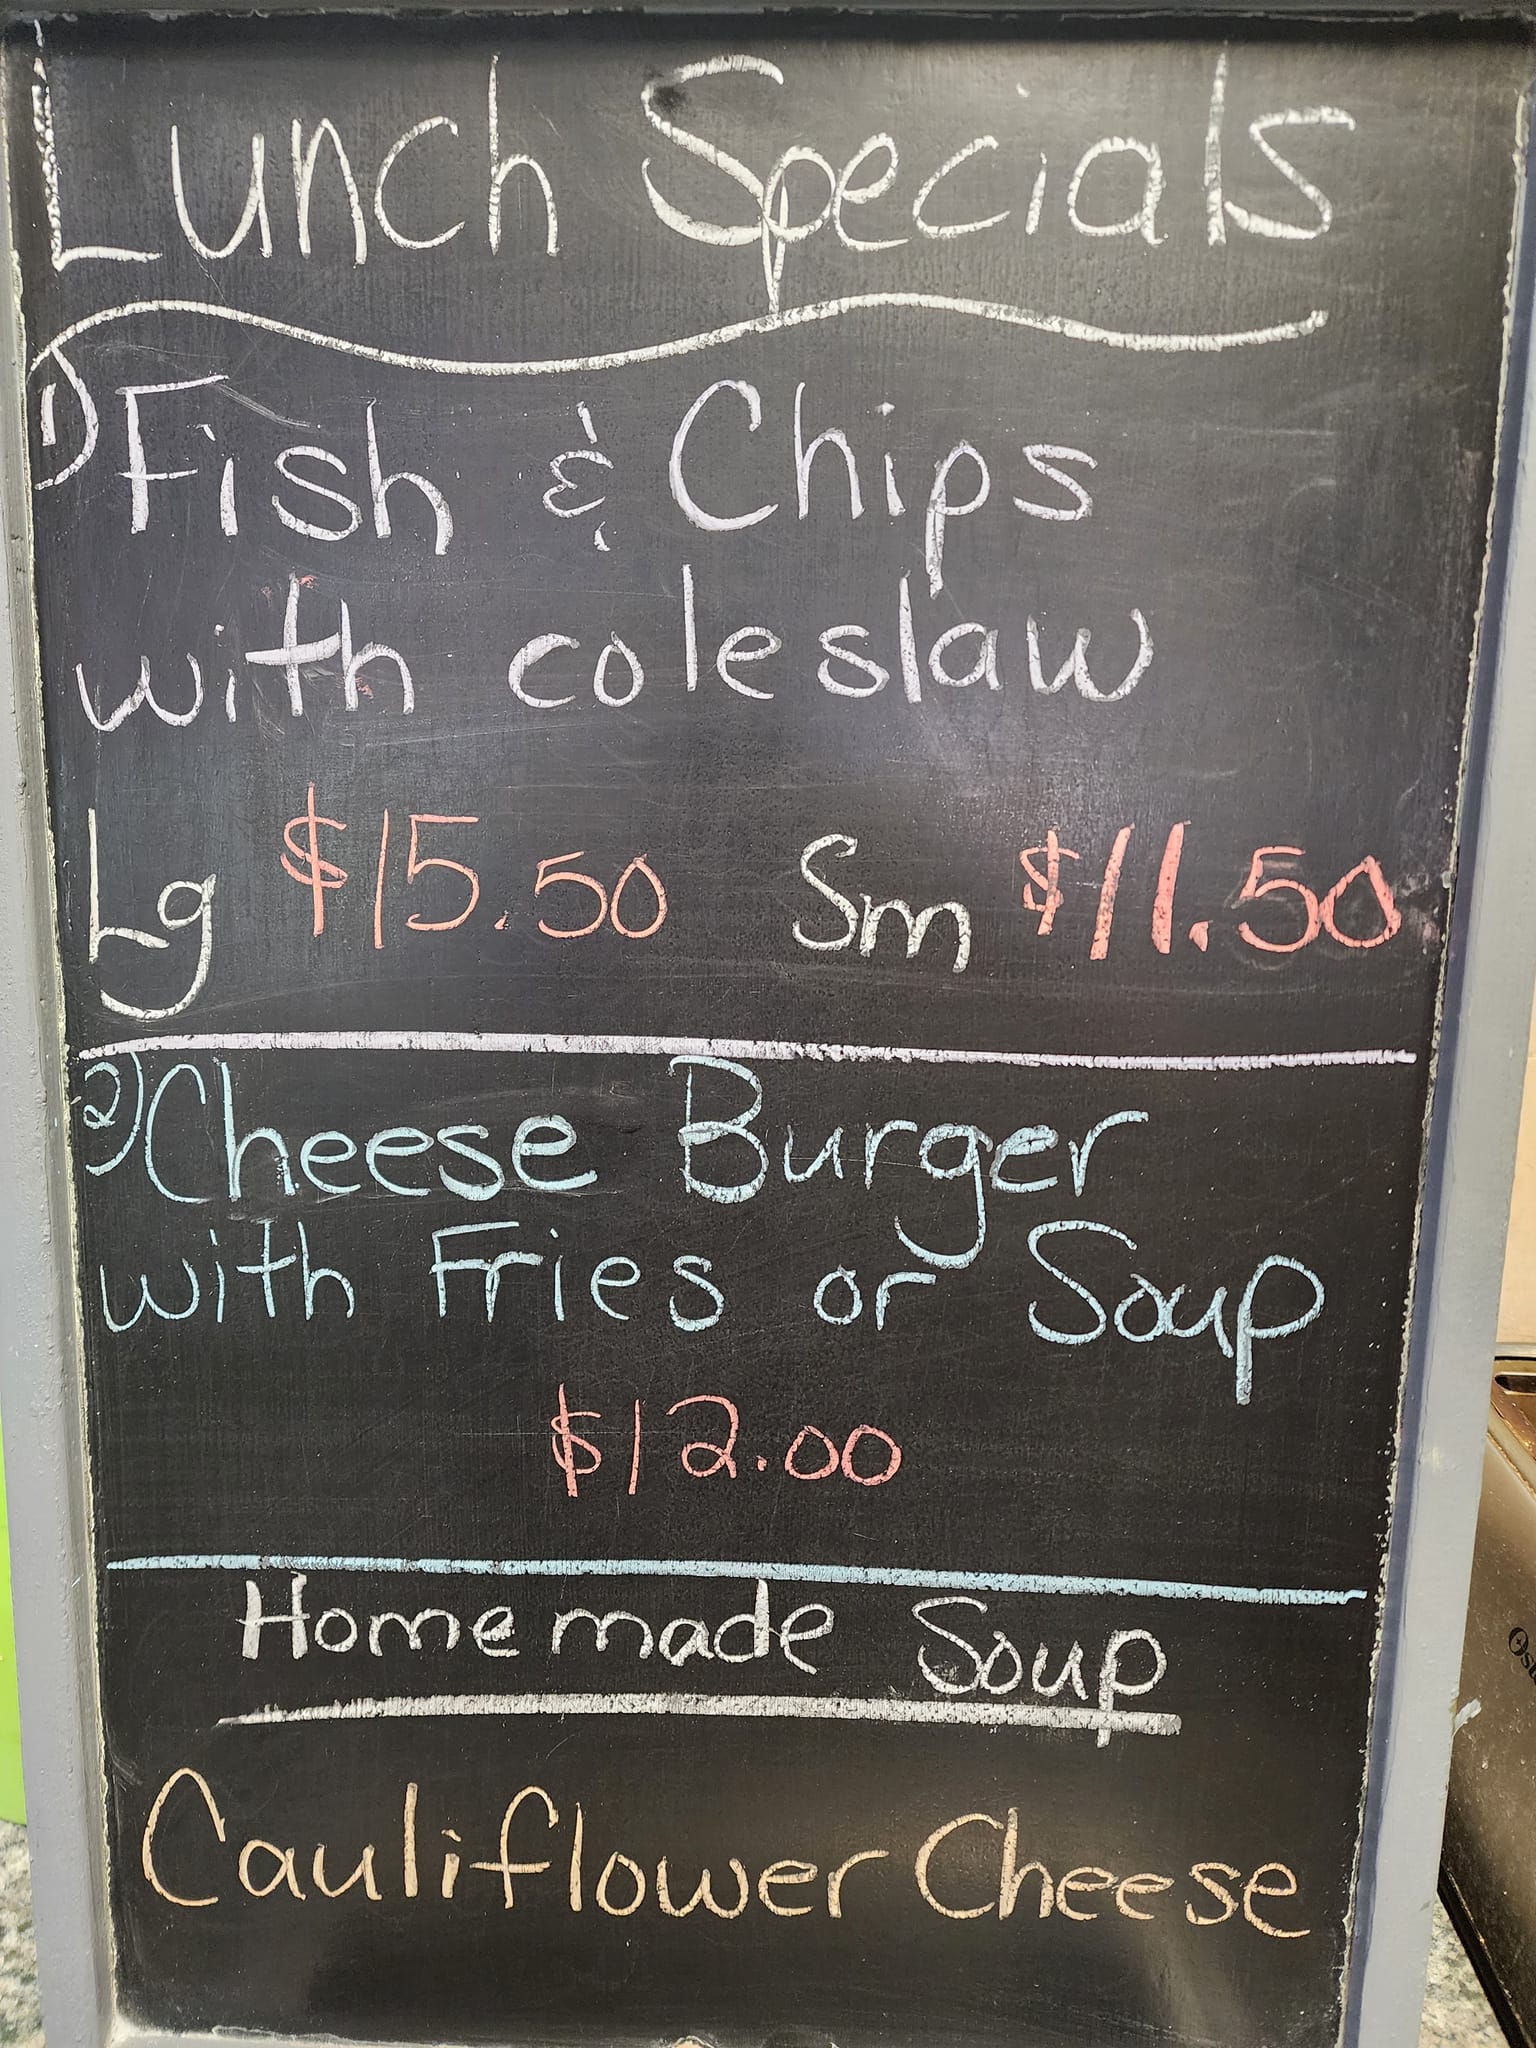 Lunch Specials
1) Fish & Chips
with coleslaw
Lg $15.50 Sm $11.50
2) Cheese Burger
with Fries or Soup
$12.00
Homemade Soup
Cauliflower Cheese